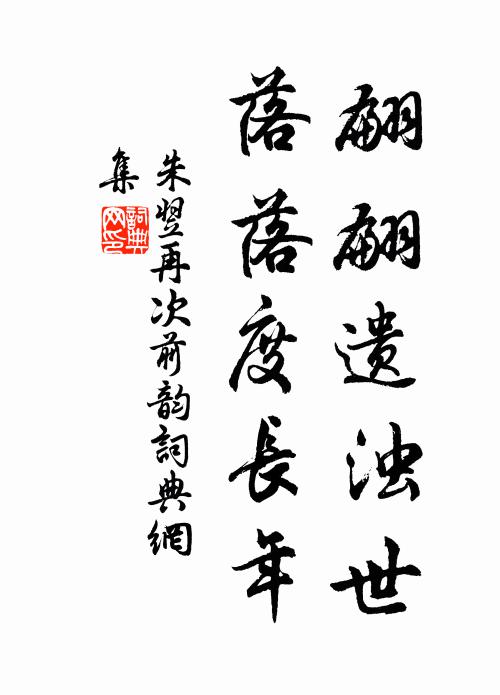 翩翩遗浊世
落落度長年
朱翌再次前韵詞典網
集
詞典網印